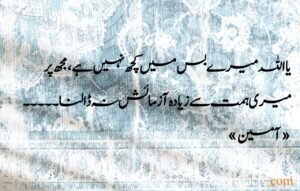 یا اللہ میرے بس میں کچھ نہیں ہے، مجھ پر
میری ہمت سے زیادہ آزمائش نہ ڈالنا۔۔۔۔۔
«آمین»
.com